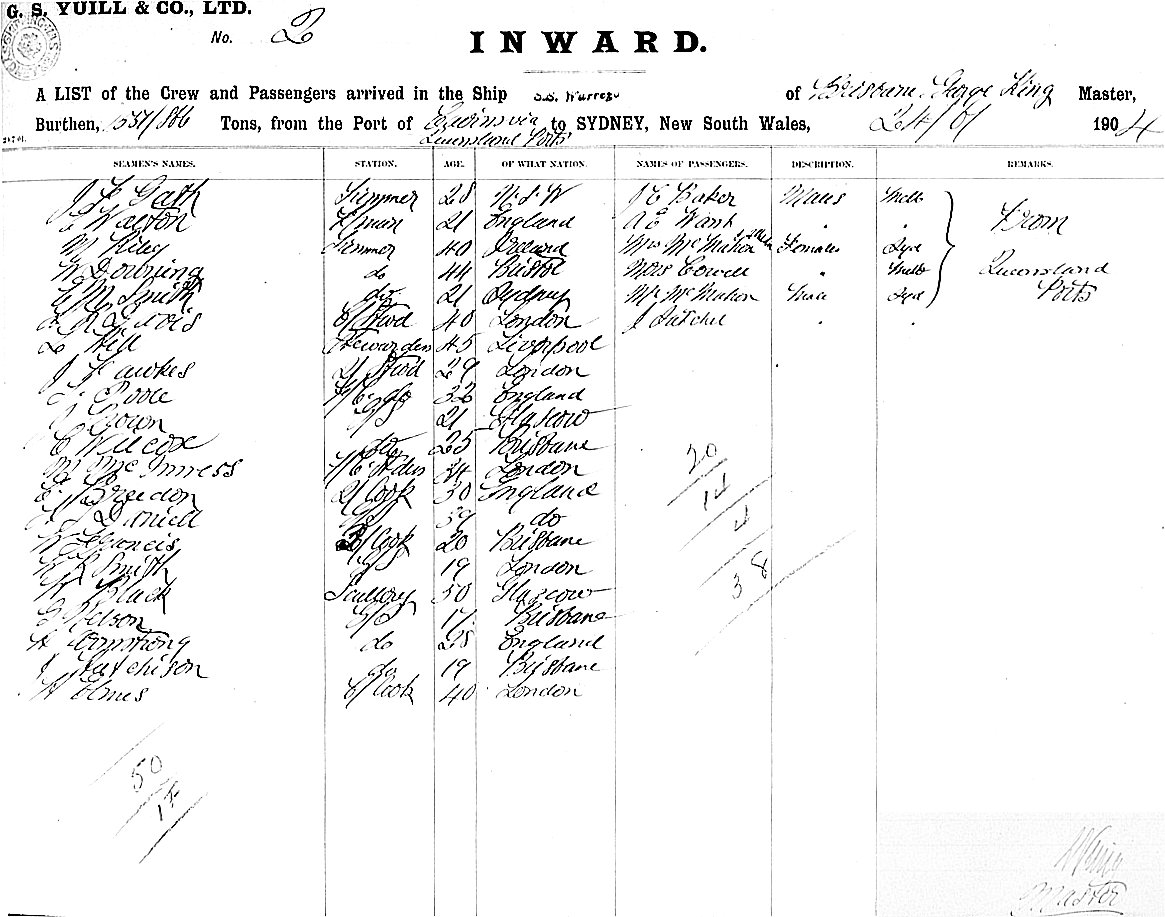 G. S. YUILL & CO., LTD.
No. 2
INWARD.
A LIST of the Crew and Passengers arrived in the Ship S.S. Warrego of Brisbane, George King Master,
Burthen, 1551/886 Tons, from the Port of Cairns via Queensland Ports to SYDNEY, New South Wales, 24/6/ 1904
SEAMEN'S NAMES. STATION. AGE. OF WHAT NATION. NAMES OF PASSENGERS. DESCRIPTION. REMARKS.
Trimmer 28 N.S.W J E Baker Males Melb
E Walton F/man 21 England A E Want " " From
M Riley Trimmer 40 Ireland Mrs McMahon Females Syd
W Downing do 44 Bristol Mrs Cowell " Melb Queensland
Smith do 21 Sydney Mr McMahon Male Syd Ports
40 London J Tutchel " "
Hill Stewardess 45 Liverpool
J Fawkes 2/Stwd 29 London
Poole do 32 England
G/S 21 Glascow
E Wilcox do 25 Brisbane
M McInness 34 London
Breedon 2/Cook 30 England
G/S 39 do
W Francis 3/Cook 20 Brisbane
Smith G/S 19 London
Black Scullery 50 Glascow
G Nelson G/S 17 Brisbane
A Armstrong do 28 England
J Hutchison do 19 Brisbane
Holmes C/Cook 40 London
20
14
4
38
50
14
King
Master